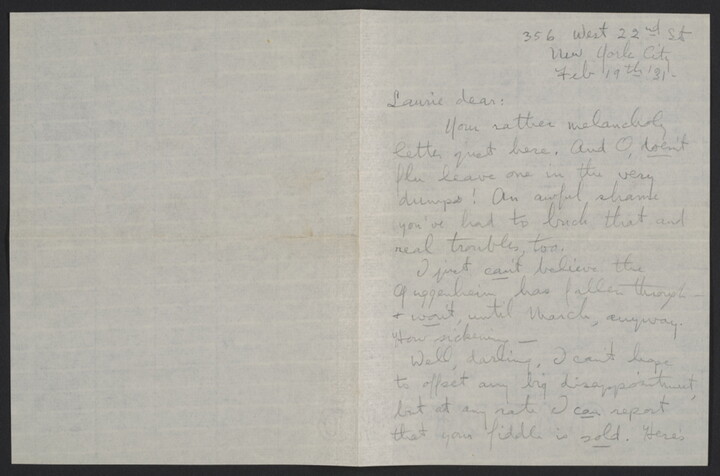 356 West 22nd St
New York City
Feb 19th '31-
Laurie dear:
Your rather melancholy
letter just here. And O, doesn't
flu leave one in the very
dumps! An awful shame
you've had to buck that and
real troubles, too.
I just can't believe the
Guggenheim has fallen through -
+ won't until March, anyway.
How sickening -
Well, darling, I can't hope
to offset any big disappointment,
but at any rate I can report
that your fiddle is sold. Here's